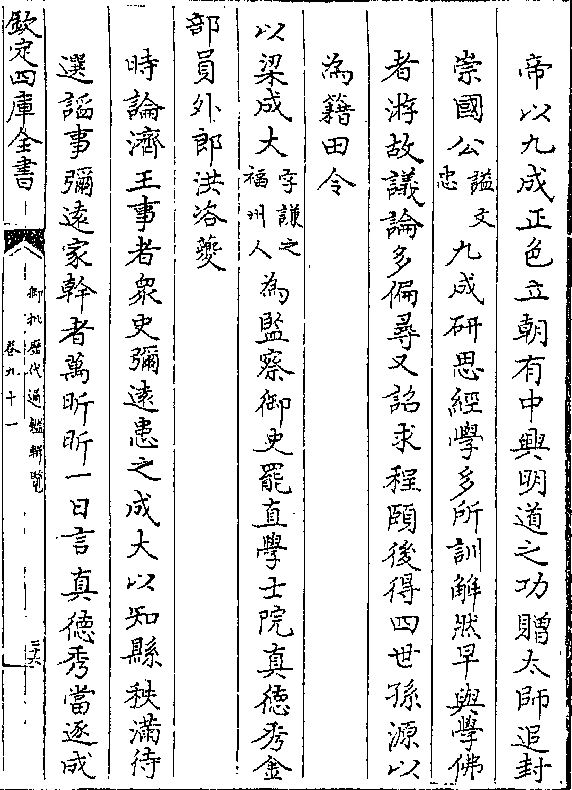 帝以九成正色立朝有中興明道之功贈太師追封
崇國公諡文忠九成研思經學多所訓解然早與學佛
者游故議論多偏尋又詔求程頤後得四世孫源以
為籍田令
以梁成大字謙之福州人為監察御史罷直學士院真德秀金
部員外郎洪咨夔
時論濟王事者衆史彌遠患之成大以知縣秩滿待
選諂事彌遠家幹者萬昕昕一日言真德秀當逐成
欽定四庫全書
御批歷代通鑑輯覽
卷九十一
三六